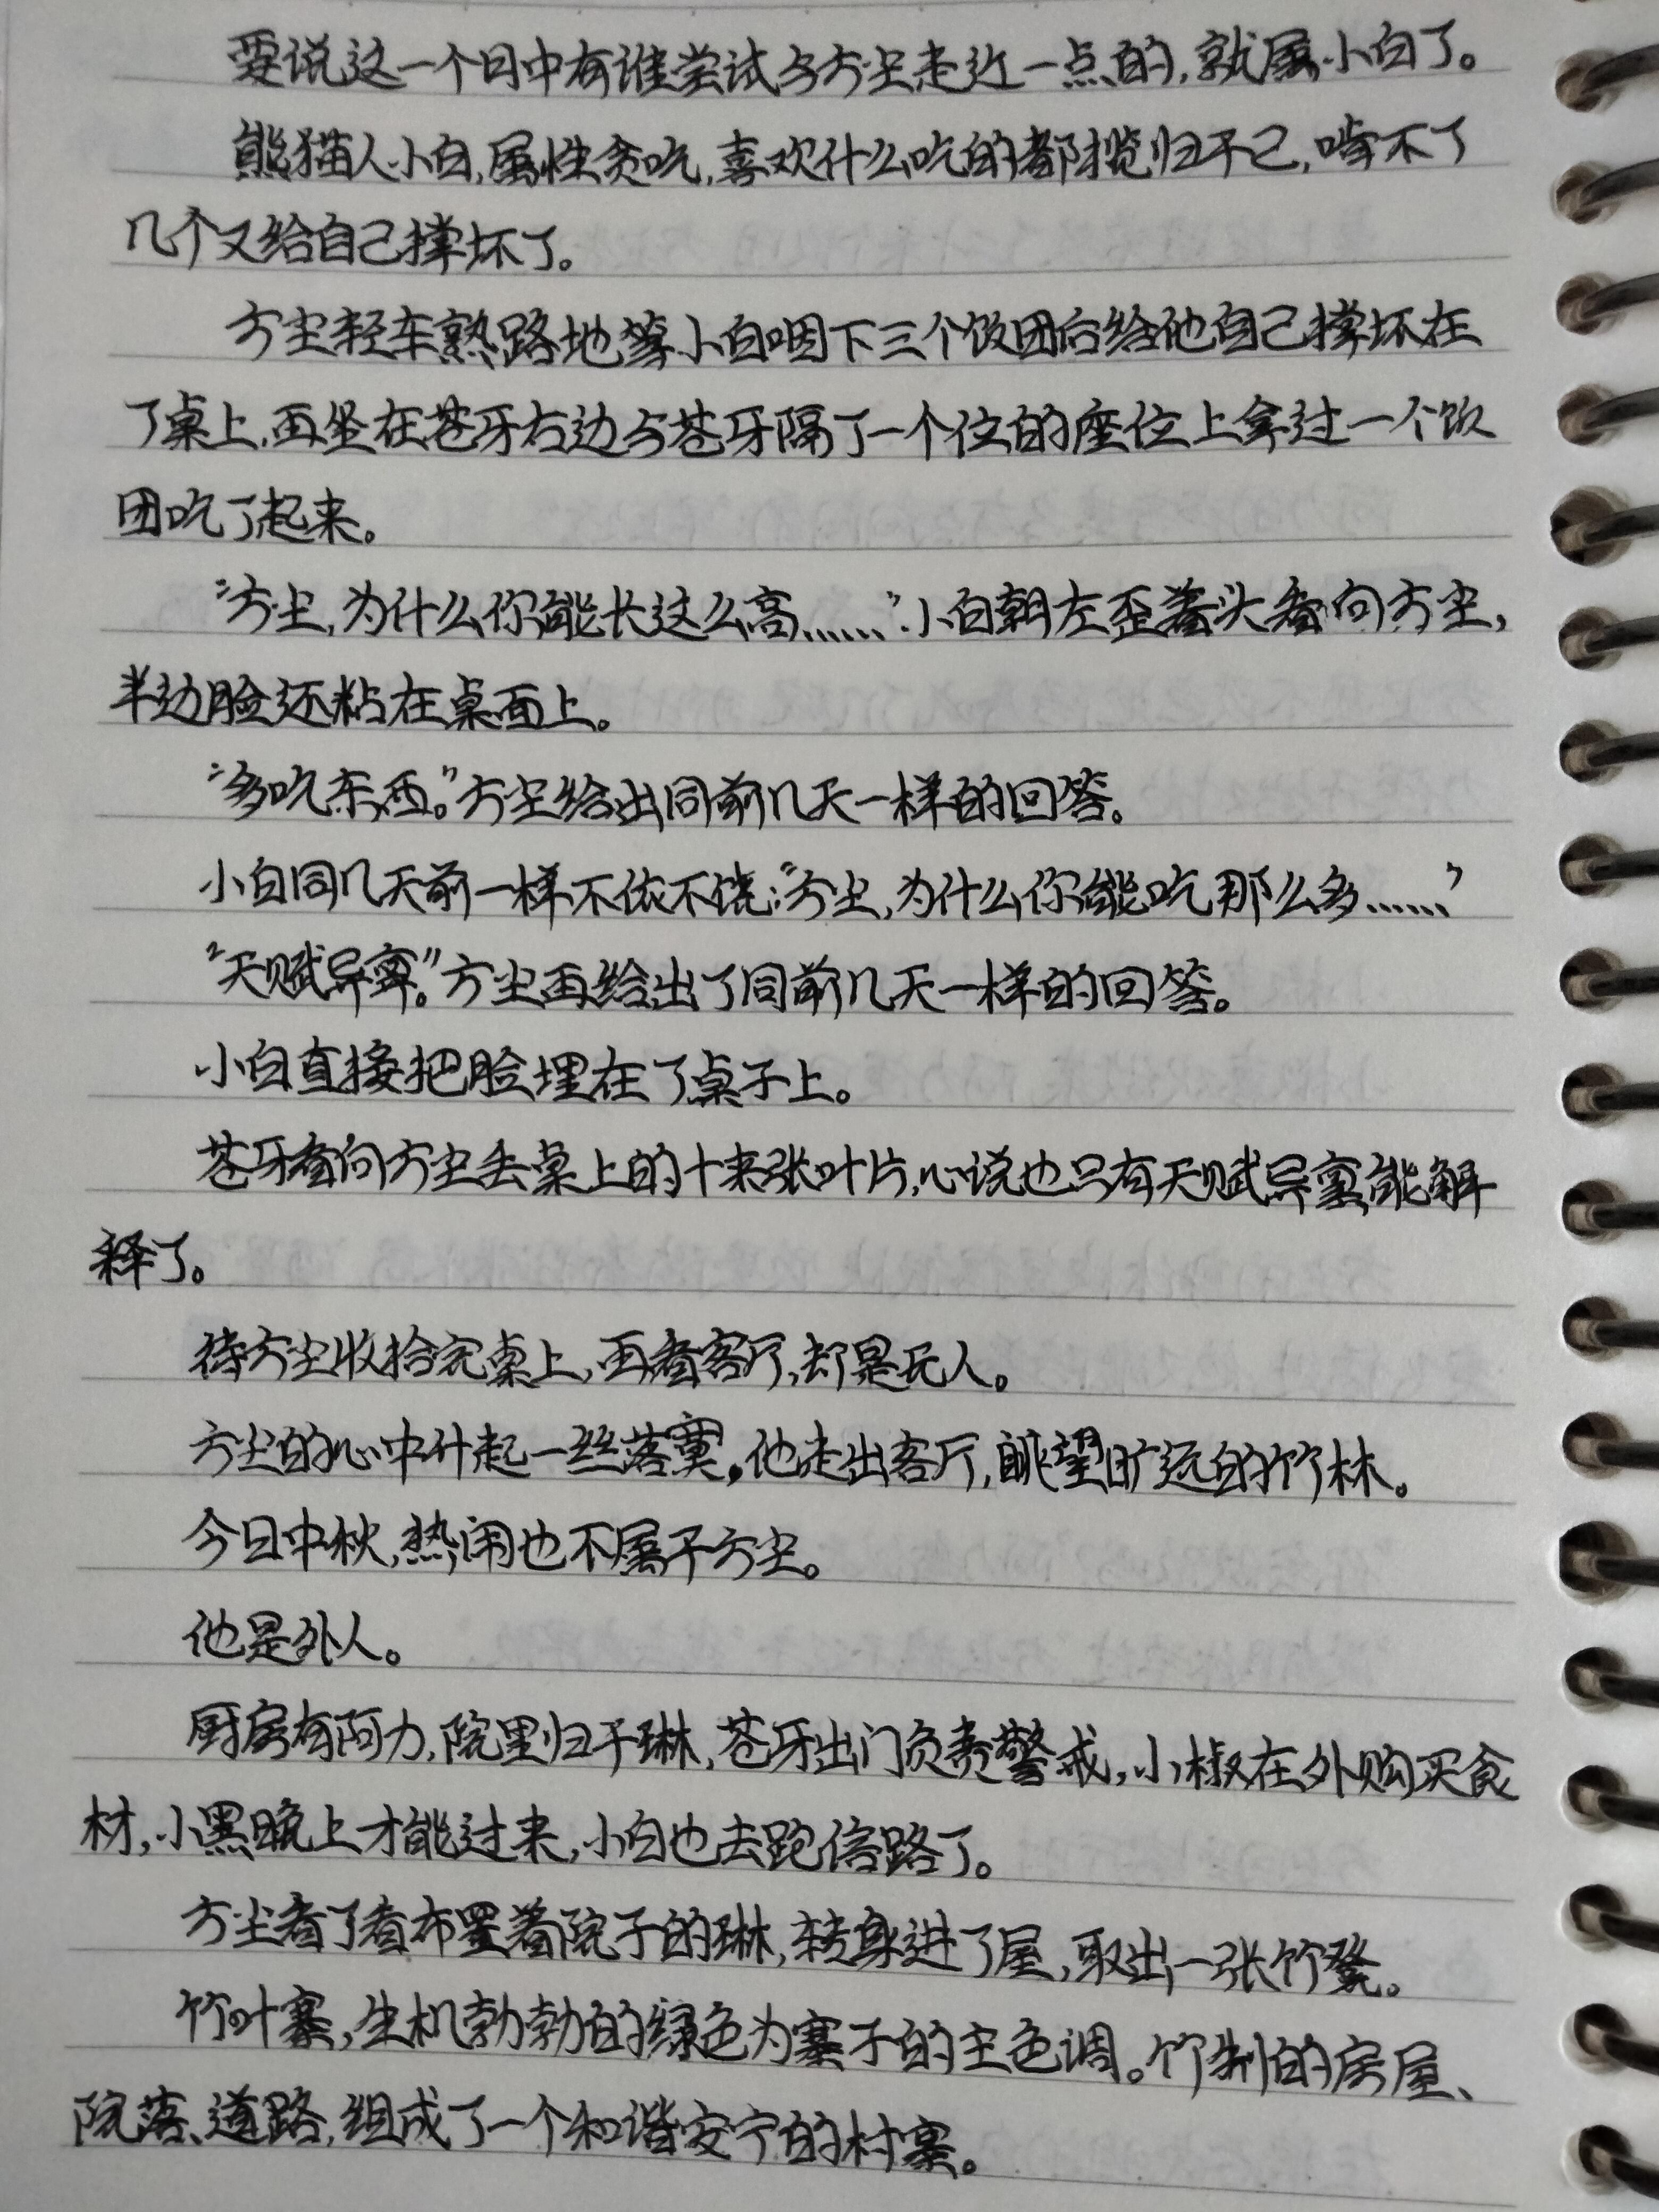 要说这一个月中有谁尝试与方尘走近一点的,就属小白了。
熊猫人小白,属性贪吃,喜欢什么吃的都揽归于己,啃不了
几个又给自己撑坏了。
方尘轻车熟路地等小白咽下三个饭团后给他自己撑坏在
了桌上,再坐在苍牙右边与苍牙隔了一个位的座位上拿过一个饭
团吃了起来。
“方尘,为什么你能长这么高……”小白朝左歪着头看向方尘,
半边脸还粘在桌面上。
“多吃东西。”方尘给出同前几天一样的回答。
小白同几天前一样不依不饶:“方尘,为什么你能吃那么多……”
“天赋异禀。”方尘再给出了同前几天一样的回答。
小白直接把脸埋在了桌子上。
苍牙看向方尘丢桌上的十来张叶片,心说也只有天赋异禀能解
释了。
待方尘收拾完桌上,再看客厅,却是无人。
方尘的心中升起一丝落寞,他走出客厅,眺望旷远的竹林。
今日中秋,热闹也不属于方尘。
他是外人。
厨房有阿力,院里归于琳,苍牙出门负责警戒,小椒在外购买食
材,小黑晚上才能过来,小白也去跑信路了。
方尘看了看布置着院子的琳,转身进了屋,取出一张竹凳。
竹叶寨,生机勃勃的绿色为寨子的主色调。竹制的房屋、
院落、道路,组成了一个和谐安宁的村寨。